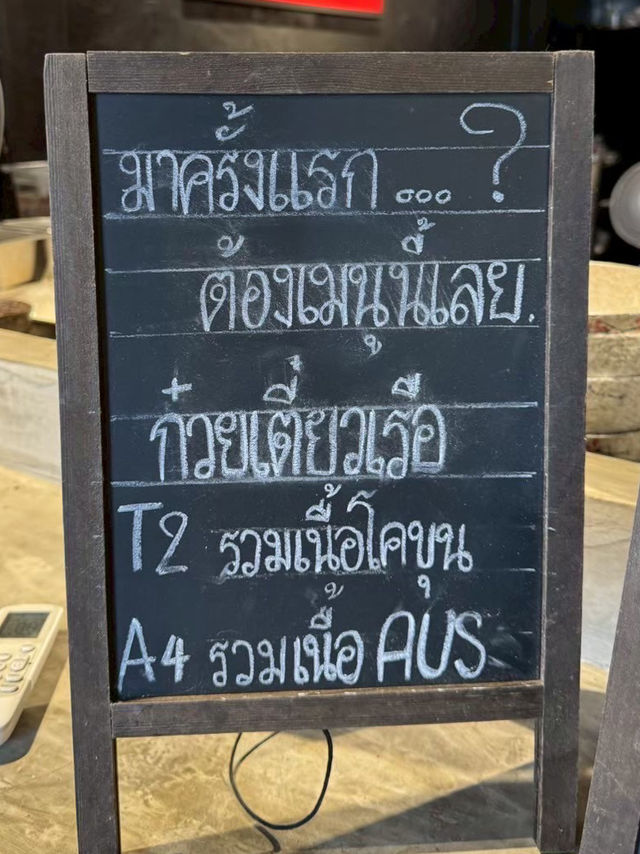 มาครั้งแรก ... ?
ต้องเมนูนี้เลย.
ก๋วยเตี๋ยวเรือ
T2 รวมเนื้อโคขุน
A4 รวมเนื้อ AUS